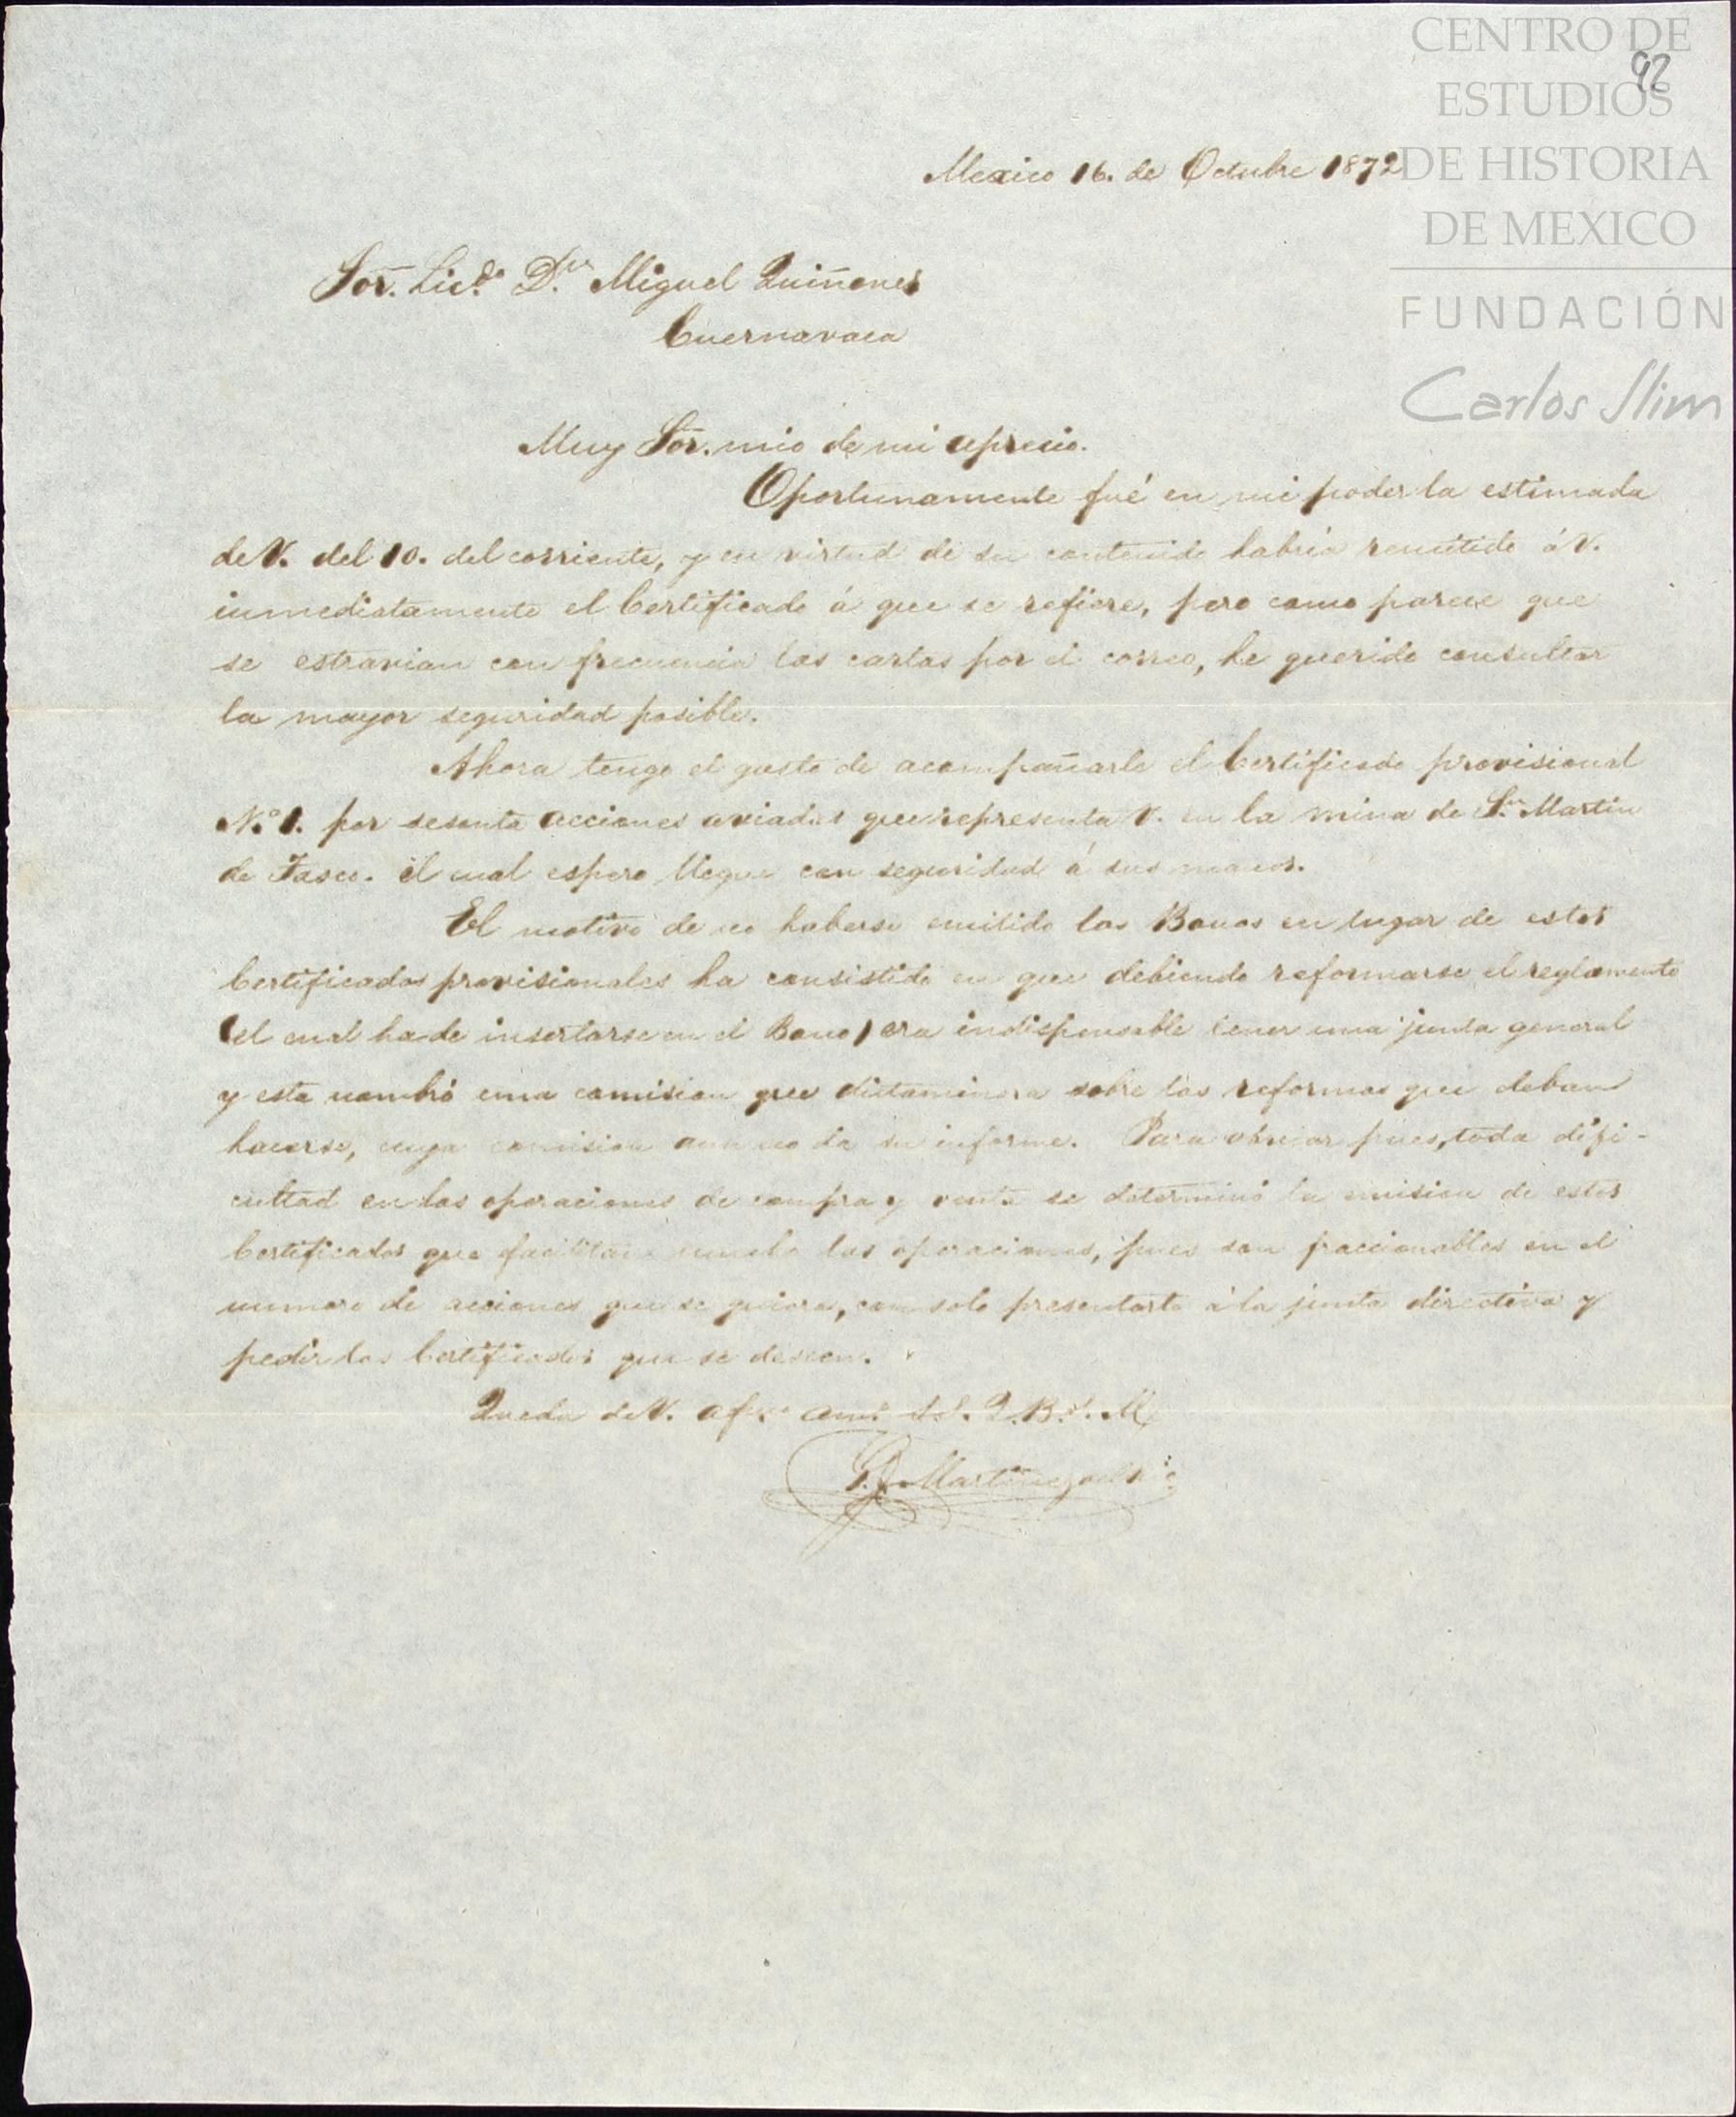 CENTRO DE
92
ESTUDIOS
DE HISTORIA
DE MEXICO
FUNDACIÓN
Carlos Slim
Mexico 16. de Octubre 1872
Sor. Licdo. Dn. Miguel Quiñones
Cuernavaca
Muy Sor. mio de mi aprecio.
Oportunamente fué en mi poder la estimada
de V. del 10. del corriente, y en virtud de su contenido habria remitido á V.
inmediatamente el Certificado á que se refiere, pero como parece que
se estravian con frecuencia las cartas por el correo, he querido consultar
la mayor seguridad posible.
Ahora tengo el gusto de acompañarle el Certificado provisional
N.º 1. por sesenta acciones aviadas que representa V. en la mina de Sn. Martin
de Tasco. el cual espero llegue con seguridad á sus manos.
El motivo de no haberse emitido los Bonos en lugar de estos
Certificados provisionales ha consistido en que debiendo reformarse el reglamento
(el cual ha de insertarse en el Bono) era indispensable tener una junta general
y esta nombró una comision que dictaminara sobre las reformas que deban
hacerse, cuya comision aun no da su informe. Para obviar pues, toda difi-
cultad en las operaciones de compra y venta se determinó la emision de estos
Certificados que facilitan mucho las operaciones, pues son fraccionables en el
numero de acciones que se quiera, con solo presentarlo á la junta directiva y
pedir los Certificados que se deseen.
Queda de V. afmo. amo. S.S. Q.B.S.M.
Martinez